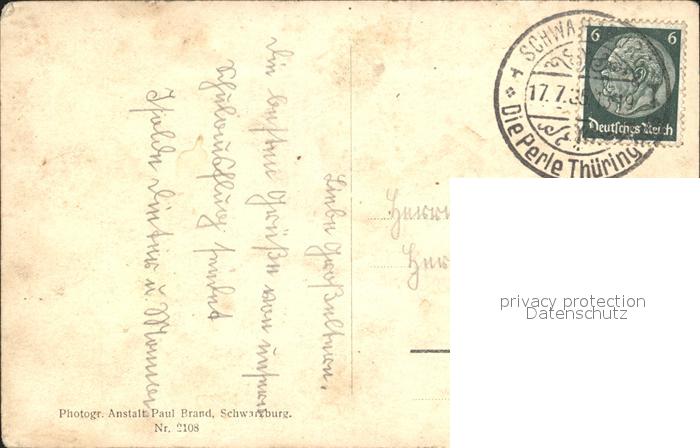 Liebe Großeltern.
Die besten Grüße von unserm
Schulausflug sendet
Isolde Dieter u.
Herrn
Her
6 6
Deutsches Reich
SCHWA
17.7.35
Die Perle Thüring
privacy protection
Datenschutz
Photogr. Anstalt Paul Brand, Schwarzburg.
Nr. 2108